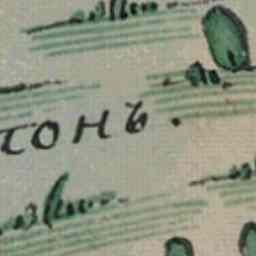 тонъ.